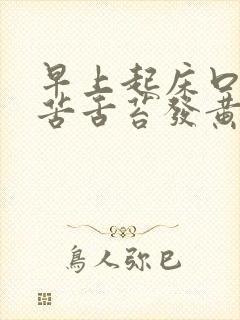 早上起床口
苦舌苔發黃
鳥人弥巳